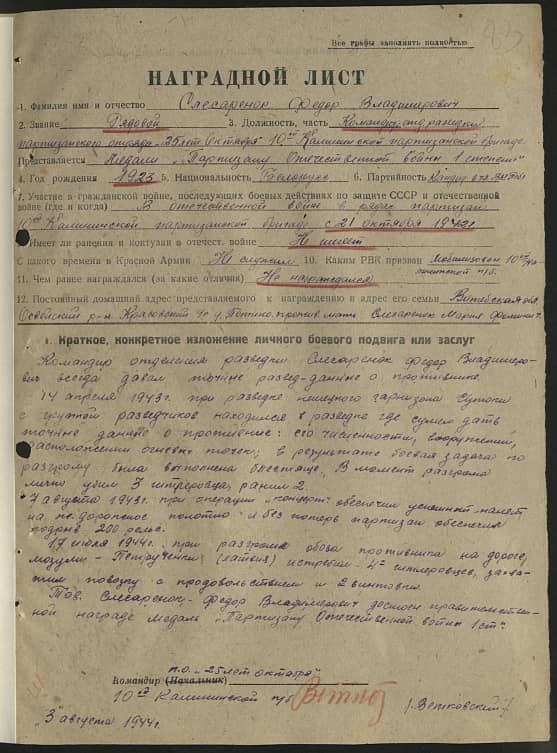 Все графы заполнять полностью
НАГРАДНОЙ ЛИСТ
1. Фамилия имя и отчество Слесаренок Федор Владимирович
2. Звание Рядовой 3. Должность, часть Командир отд. разведки
партизанского отряда "25 лет Октября" 10ой Калининской партизанской бригады
Представляется к медали "Партизану Отечественной войны 1 степени"
4. Год рождения 1923 5. Национальность Белорус 6. Партийность
7. Участие в гражданской войне, последующих боевых действиях по защите СССР и отечественной
войне (где и когда) В отечественной войне в рядах партизан
10ой Калининской партизанской бригады с 21 октября
Имеет ли ранения и контузии в отечест. войне Не имеет
С какого времени в Красной Армии Не служил 10. Каким РВК призван Мобилизован 10ой
11. Чем ранее награждался (за какие отличия) Не награждался
12. Постоянный домашний адрес представляемого к награждению и адрес его семьи Витебская обл.
р-н с/с д. мать Слесаренок Мария
1. Краткое, конкретное изложение личного боевого подвига или заслуг
Командир отделения разведки Слесаренок Федор Владимиро-
вич всегда давал точные развед-данные о противнике.
14 апреля 1943г. при разведке немецкого гарнизона Сутоки
с группой разведчиков находился в разведке где сумел дать
точные данные о противнике: его численности, вооружении,
расположении огневых точек; в результате боевая задача по
разгрому была выполнена блестяще. В момент разгрома
лично убил 3 гитлеровца, ранил 2.
7 августа 1943г. при операции "концерт" обеспечил успешный налет
на ж.дорожное полотно и без потерь партизан обеспечил
подрыв 200 рельс.
17 июля 1944г. при разгроме обоза противника на дороге
Мозули - Петрученки (Латвия) истребил 4х гитлеровцев, захва-
тил повозку с продовольствием и 2 винтовки.
Тов. Слесаренок Федор Владимирович достоин правительствен-
ной награде медаль "Партизану Отечественной войны 1 ст."
п.о. "25 лет октября"
Командир (Начальник)
10ой Калининской п/б
(Ветковский)
"3" августа 1944г.